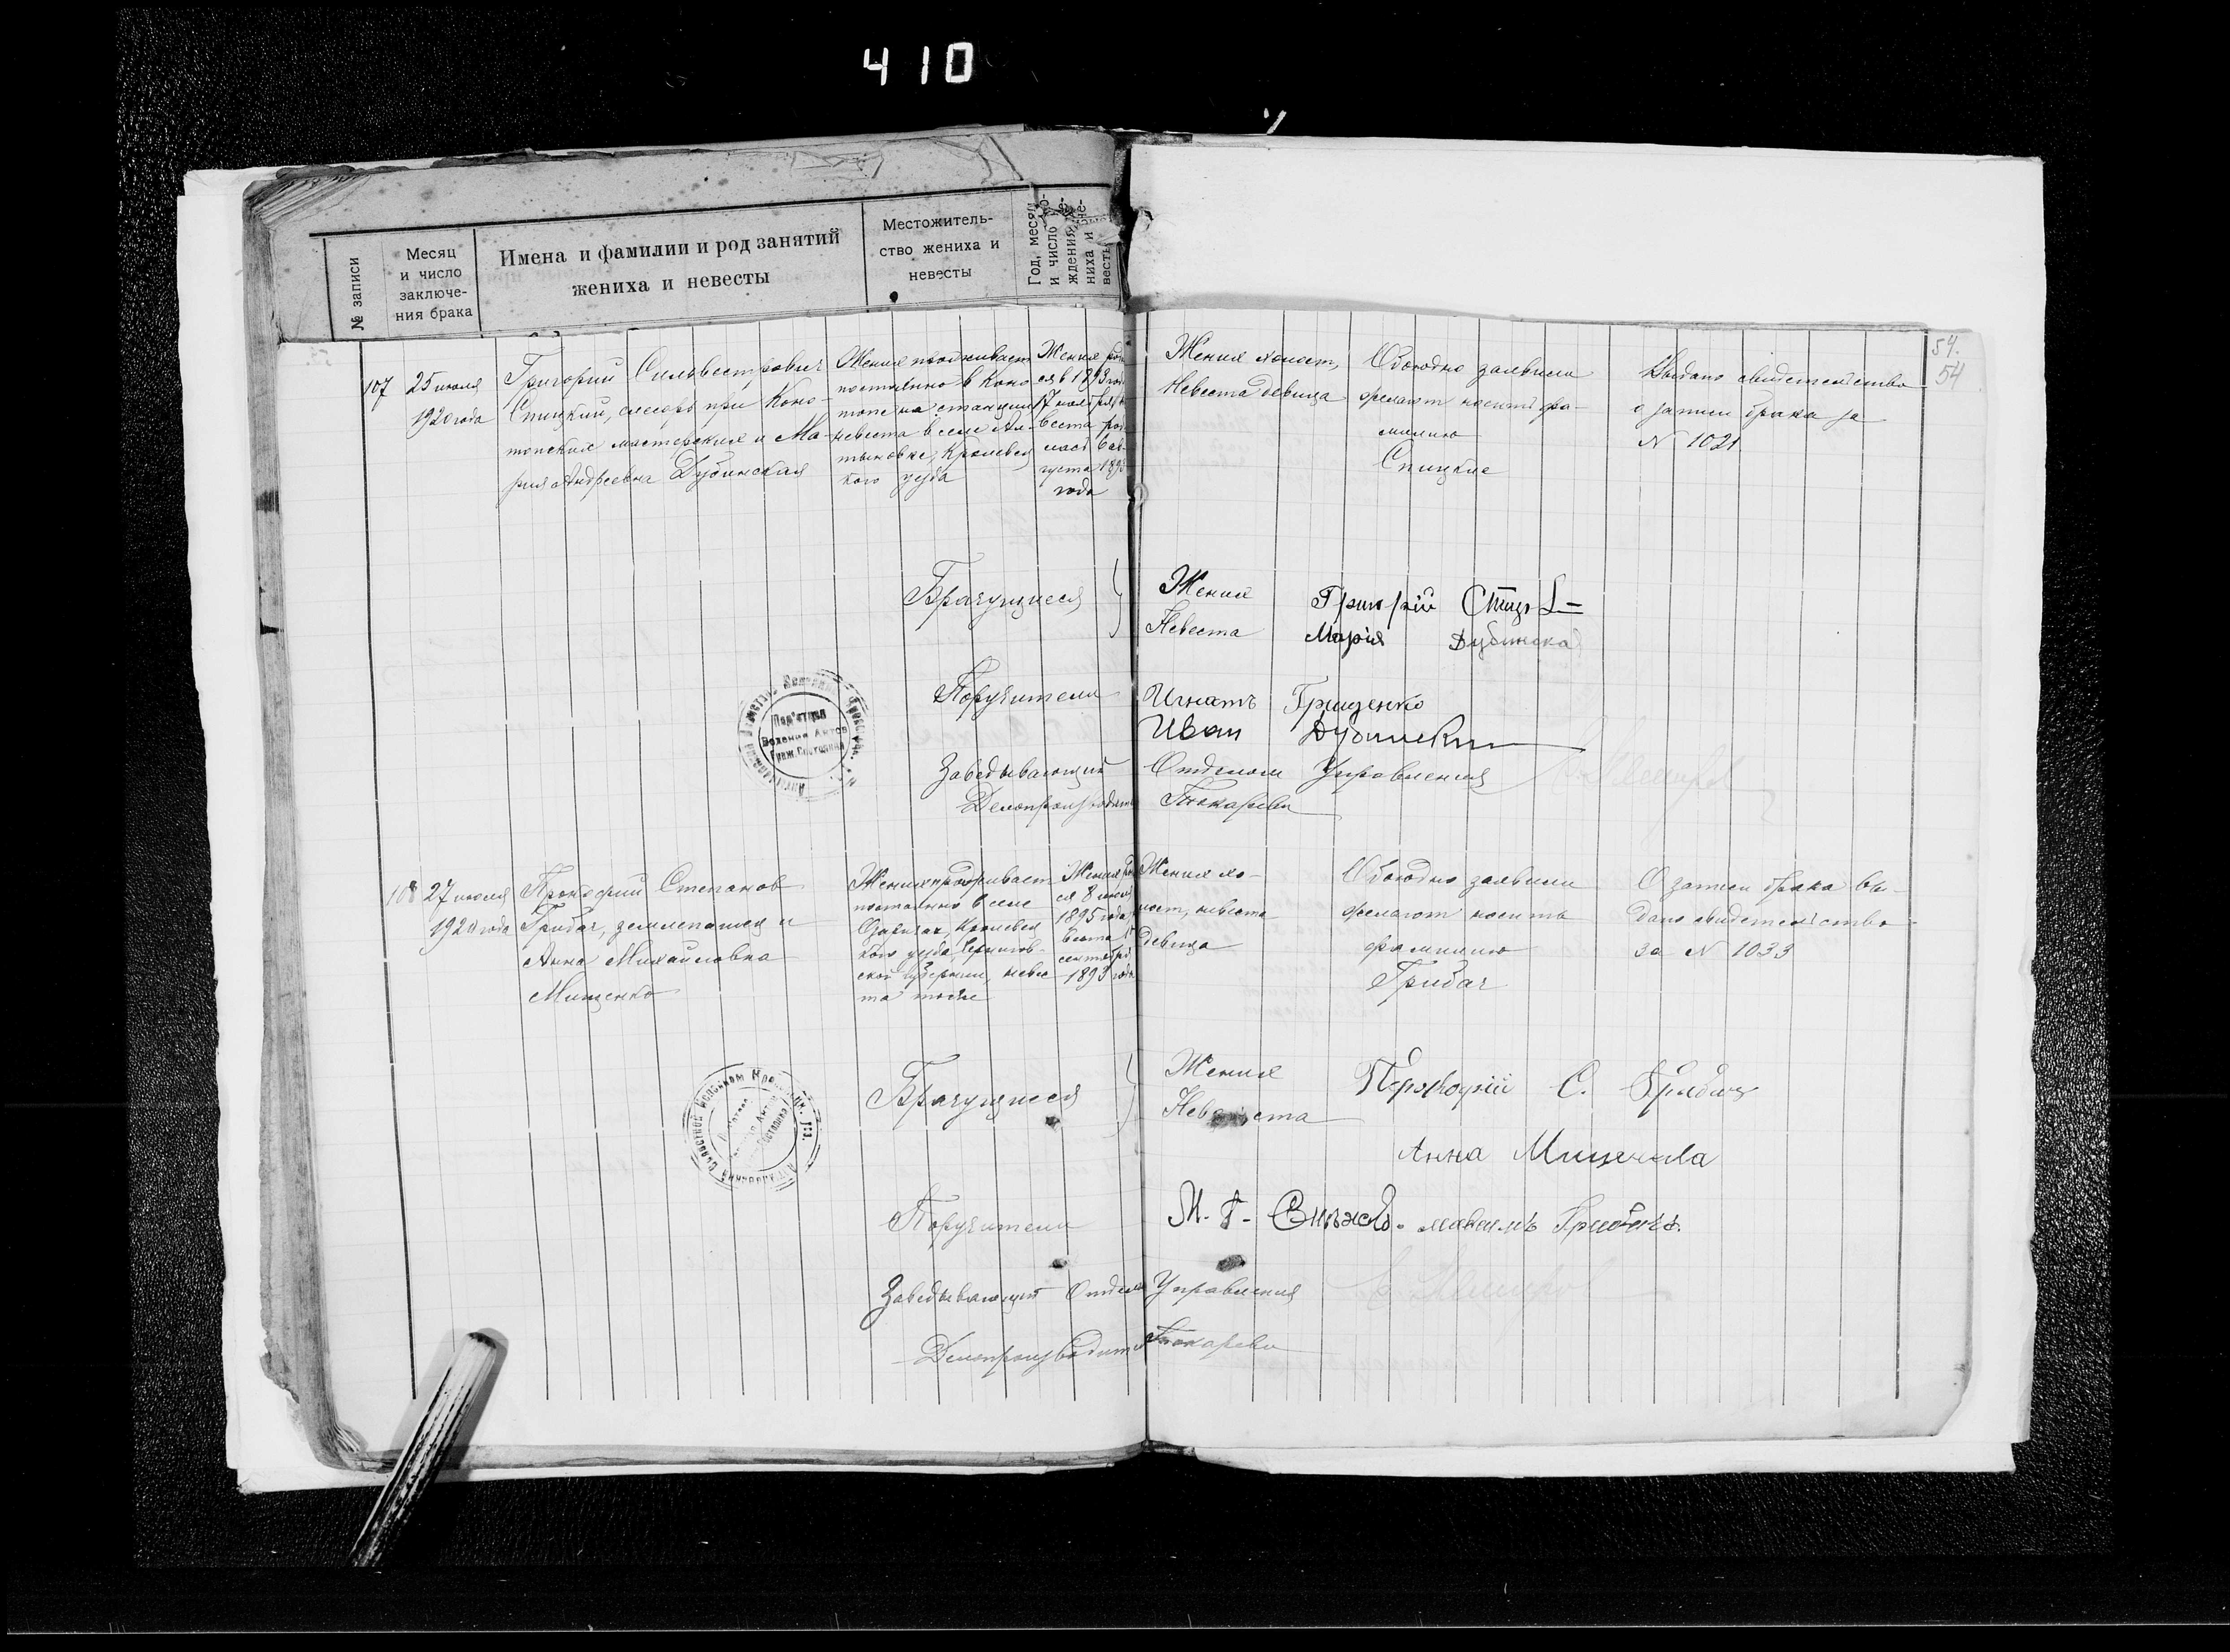 410
№ записи
Месяц
и число
заключе-
ния брака
Имена и фамилии и род занятий
жениха и невесты
Местожитель-
ство жениха и
невесты
Год, месяц
и число
ждения
ниха и
весты
54.
54
107
25 июля
1920 года
Григорий Сильвестрович
Спицкий, слесарь при Коно-
топских мастерских и Ма-
рия Андреевна Дубинская
Жених проживает
постоянно в Коно-
топе на станции
невеста в селе Ал-
тыновке, Кролевец
кого уезда
Жених
ся в 1893 года
17
веста
лась 6 ав-
густа
года
Жених холост,
Невеста девица
Обоюдно заявили
желают носить фа-
милию
Спицкие
Выдано свидетельство
о записи брака за
N 1021
Брачущиеся
Жених
Григорий
Невеста
Марія Дубинска
Поручители
Игнатъ Грищенко
Иван Дубинский
Заведывающий Отделом Управления
Делопроизводитель Токарева
108
27 июля
1920 года
Прокофий Степанов
Грибач, землепашец и
Анна Михайловна
Мищенко
Жених проживает
постоянно в селе
Кролевец
кого уезда, Чернигов-
ской губернии, невес
та тоже
Жених
ся 8 июля
1895 года
веста
сентября
1893 года
Жених хо-
лост, невеста
девица
Обоюдно заявили
желают носить
фамилию
Грибач
О записи брака вы-
дано свидетельство
за N 1033
Брачущиеся
Жених
Прокофій С. Грибач
Невеста
Анна
Поручители
М.
Заведывающий Отдела Управления
Делопроизводитель Токарева